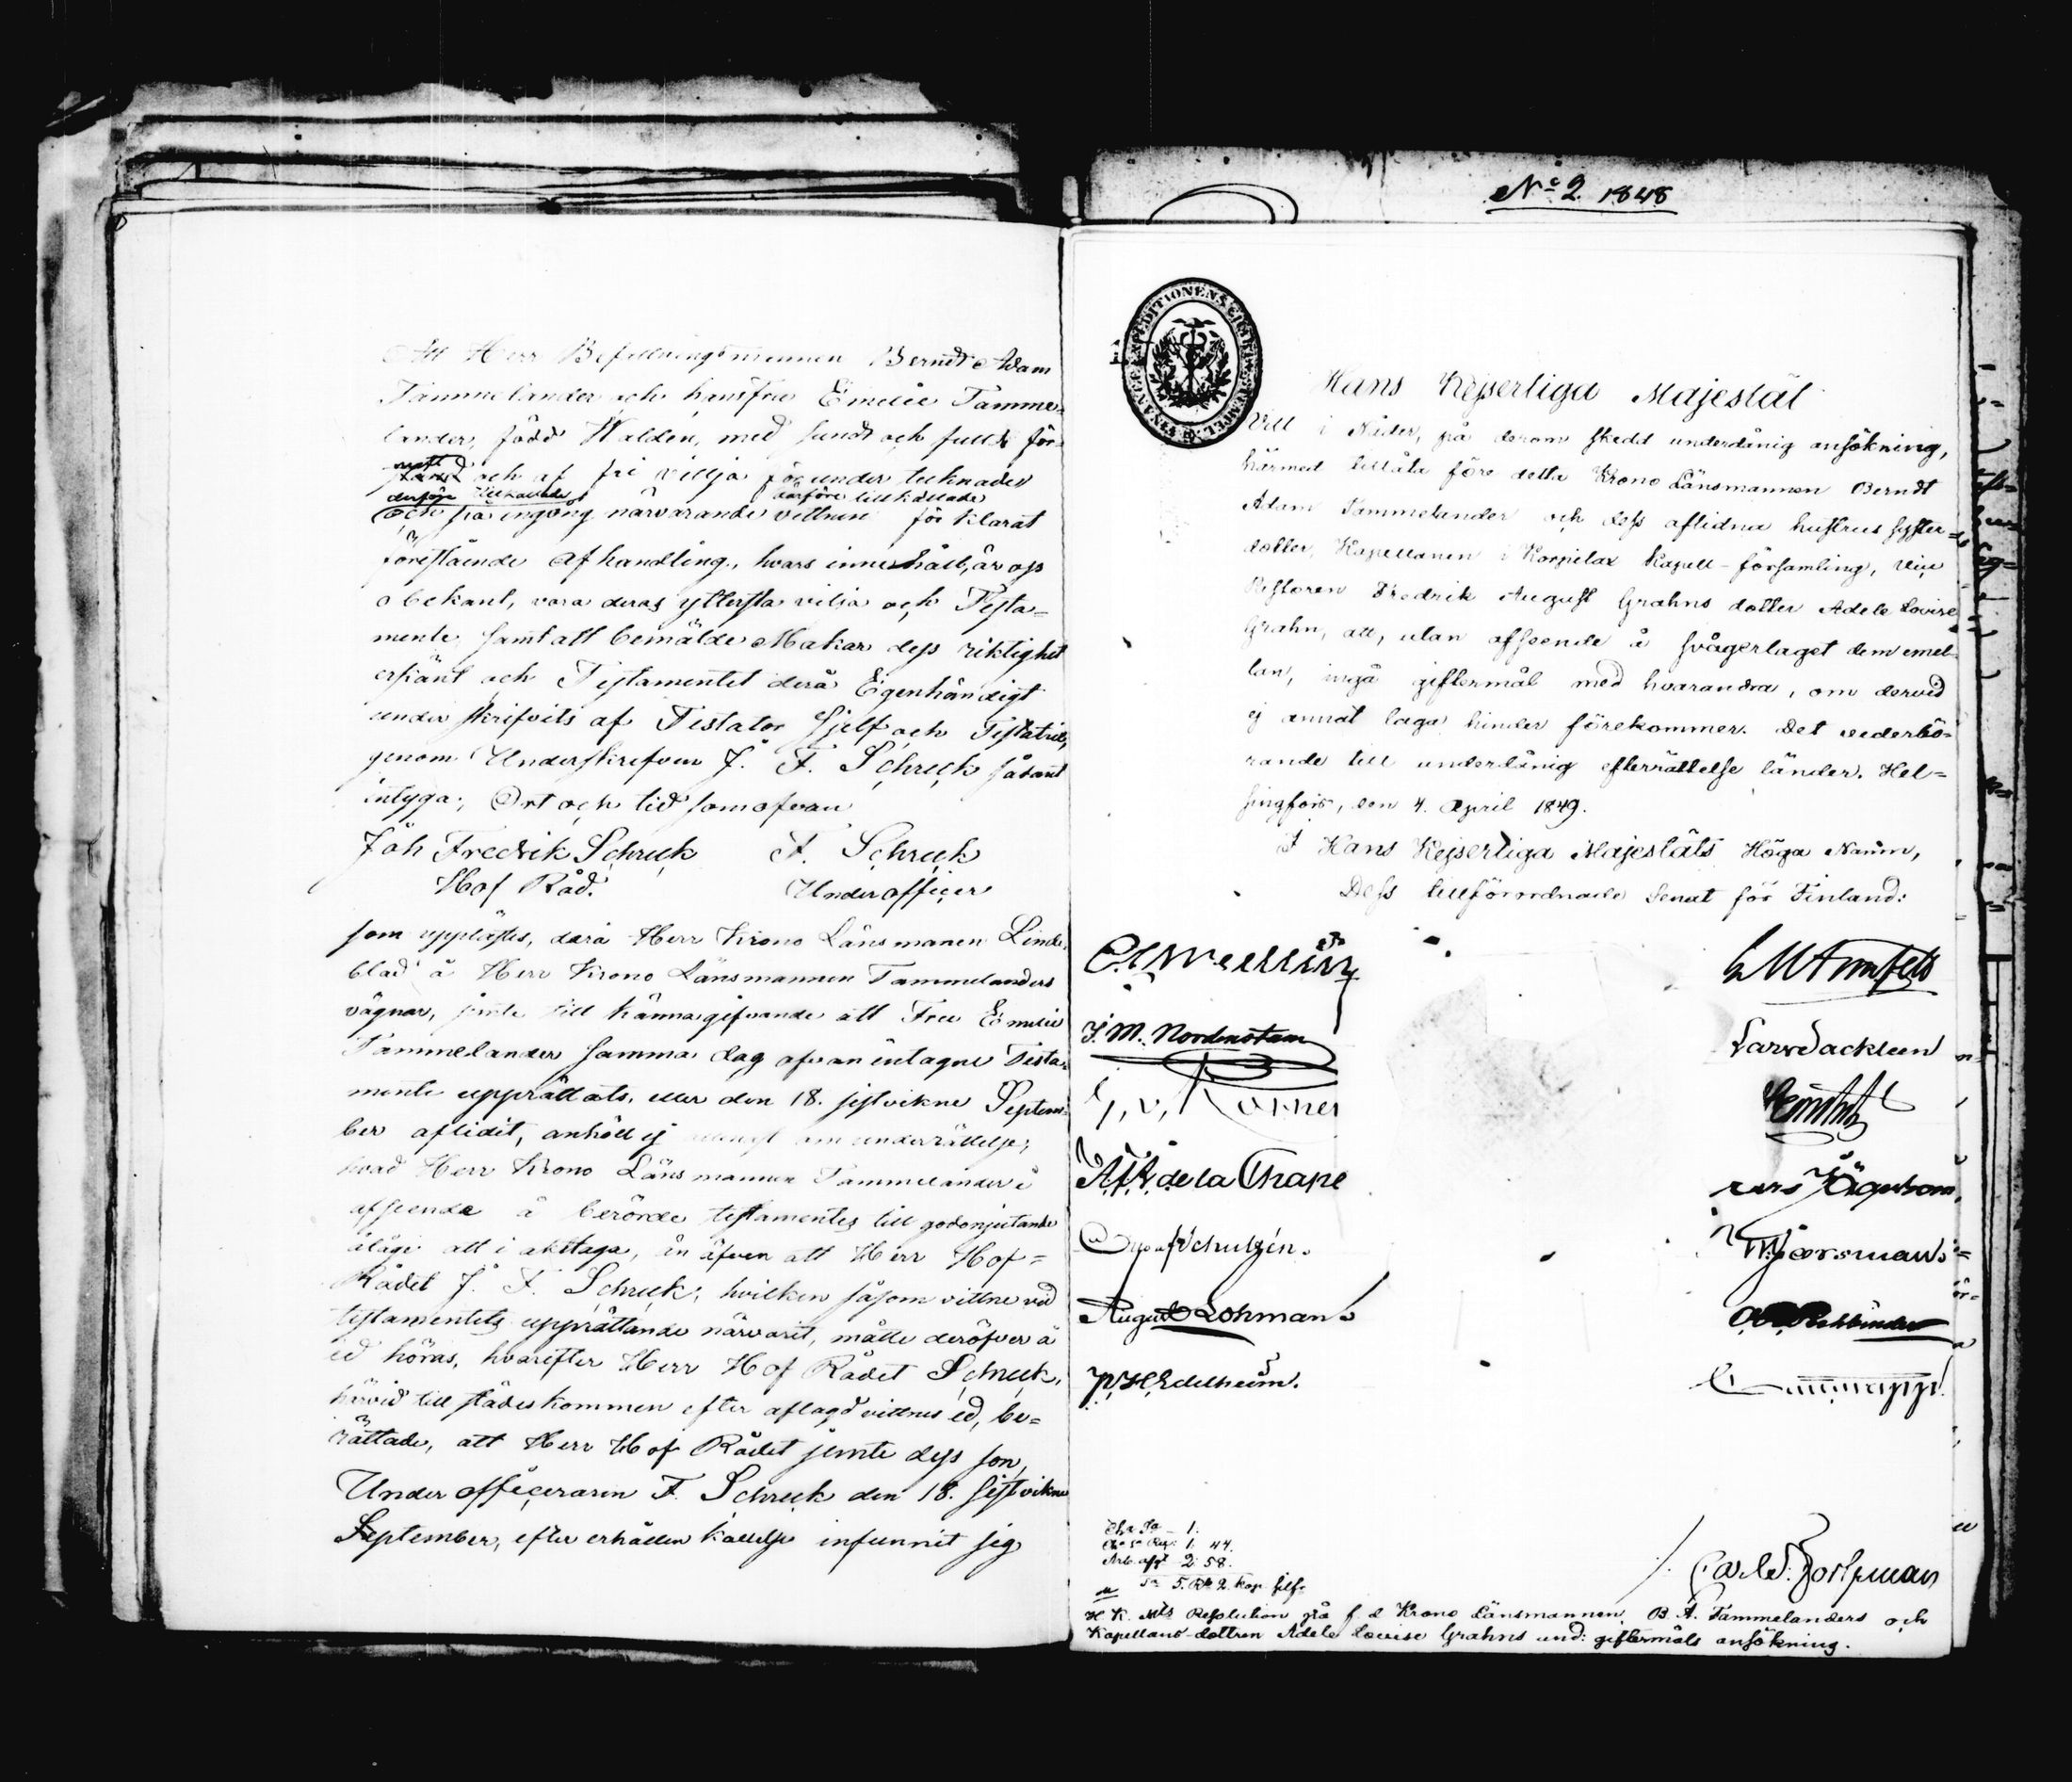 Att Herr Befallningsmannen Berndt Adam
Tammelander och hans fru Emelie Tamme-
lander, född Walden, med sundt och fullt för-
nuft
och af fri vilja för under tecknade
derföre tillkallade därföre tillkallade
och på ingång närvarande vittnen förklarat
förestående afhandling, hvars innehåll, är oss
obekant, vara deras yttersta vilja och Testa-
mente, samt att bemälde Makar dess riktighet
erkänt och Testamentet derå Egenhändigt
underskrifvits af Testator sjelf och Testatrix,
genom Underskrifven J. F. Schreck sådant
intyga; Ort och tid som ofvan
Joh Fredrik Schreck F. Schreck
Hof Råd. Underofficer
som upplästes, derå Herr Krono Länsmanen Lind-
blad å Herr Krono Länsmannen Tammelanders
vägnar, jemte tillkännagifvande att Fru Emelie
Tammelander samma dag ofvan intagne Testa-
mente upprättats, eller den 18. sistvikne Septem-
ber aflidit, anhöll ej om underrättelse,
hvad Herr Krono Länsmannen Tammelander i
afseende å berörde testamentes till godonjutande
ålåge att i akttaga, än äfven att Herr Hof-
Rådet J. F. Schreck, hvilken såsom vittne vid
testamentets upprättande närvarit, måtte deröfver å
ed höras, hvarefter Herr Hof Rådet Schreck,
härvid till städes kommen efter aflagd vittnes ed, be-
rättade, att Herr Hof Rådet jemte dess son,
Under officeraren F. Schreck den 18. sistvikne
September, efter erhållen kallelse infunnit sig
No 2. 1848
FINANCE EXPEDITIONENS
Hans Kejserliga Majestät
Vill i Nåder, på derom skedd underdånig ansökning,
härmed tillåta före detta Krono Länsmannen Berndt
Adam Tammelander och dess aflidna hustrus syster-
dotter, Kapellanen i Korpilax Kapell-församling, Vice
Pastoren Fredrik August Grahns dotter Adele Lovise
Grahn, att, utan afseende å svågerlaget dem emel-
lan, ingå giftermål med hvarandra, om dervid
ej annat laga hinder förekommer. Det vederbö-
rande till underdånig efterrättelse länder. Hel-
singfors, den 4. April 1849.
I Hans Kejserliga Majestäts Höga Namn,
Dess tillförordnade Senat för Finland:
J. M. Nordenstam
Lars Sackleen
A F R de la Chapelle
August Lohman
P. H. Edelheim.
1.
1. 44.
2. 58.
Sa 5. Rb 2. Kop. silf.
H. K. Mts Resolution på f. d. Krono Länsmannen B. A. Tammelanders och
Kapellans-dottren Adele Lovise Grahns und: giftermåls ansökning.